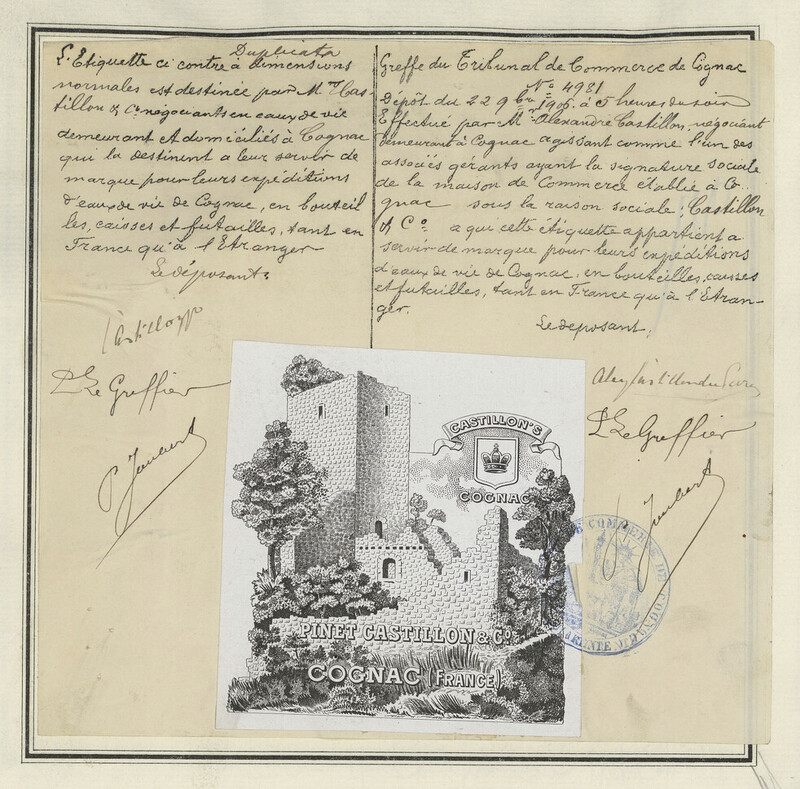 Duplicata
L'Etiquette ci contre à dimensions
normales est destinée par MM Cas-
tillon & Co négociants en eaux de vie
demeurant et domiciliés à Cognac
qui la destinent a leur servir de
marque pour leurs expéditions
d'eaux de vie de Cognac, en bouteil
les, caisses et futailles, tant en
France qu'à l'Etranger
Le déposant,
Castillon
Le Greffier
P. Jaubert
Greffe du Tribunal de Commerce de Cognac
No 4981
Dépôt du 22 9bre 1906 à 5 heures du soir
Effectué par Mr Alexandre Castillon, négociant
demeurant à Cognac agissant comme l'un des
associés gérants ayant la signature sociale
de la maison de Commerce etablie à Co
gnac sous la raison sociale; Castillon
& Co a qui cette étiquette appartient a
servir de marque pour leurs expéditions
d'eaux de vie de Cognac, en bouteilles, caisses
et futailles, tant en France qu'à l'Etran-
ger.
Le déposant,
Le Greffier
Jaubert
CASTILLON'S
COGNAC
PINET CASTILLON & Co
COGNAC (FRANCE)
COMMERCE DE COGNAC